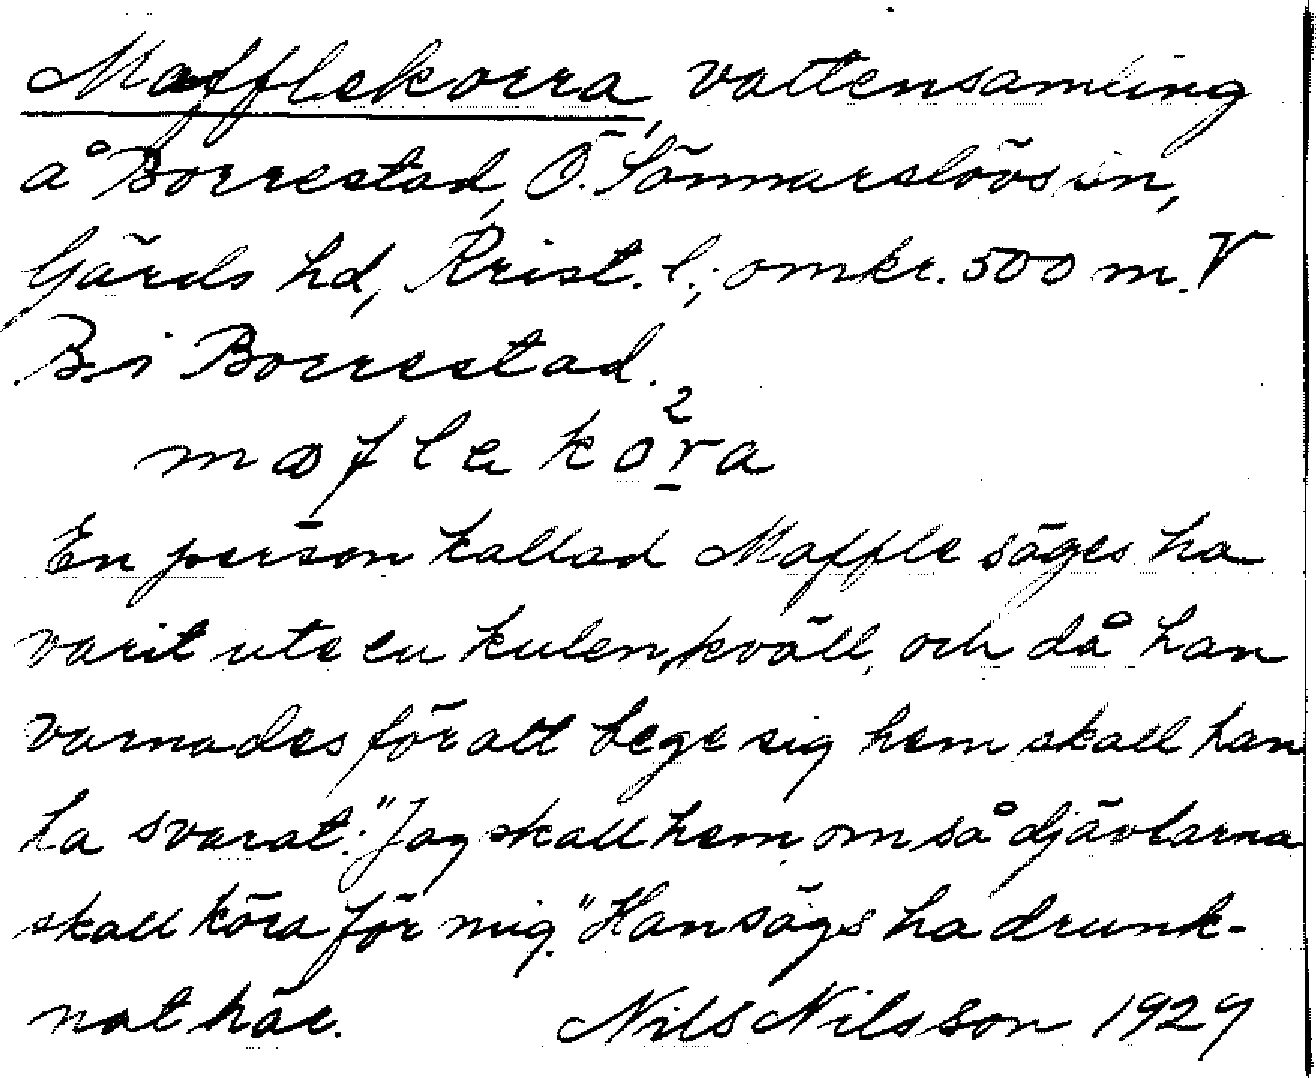 Mafflekorra, vattensamling
å Borrestad, Ö. Sönnarslövs sn,
Gärds hd, Krist. l.; omkr. 500 m. V
B. i Borrestad.
mafleko²ra
En person kallad Maffle säges ha
varit ute en kulen kväll, och då han
varnades för att bege sig hem skall han
ha svarat: "Jag skall hem, om så djävlarna
skall köra för mig." Han sägs ha drunk-
nat här. Nils Nilsson 1929